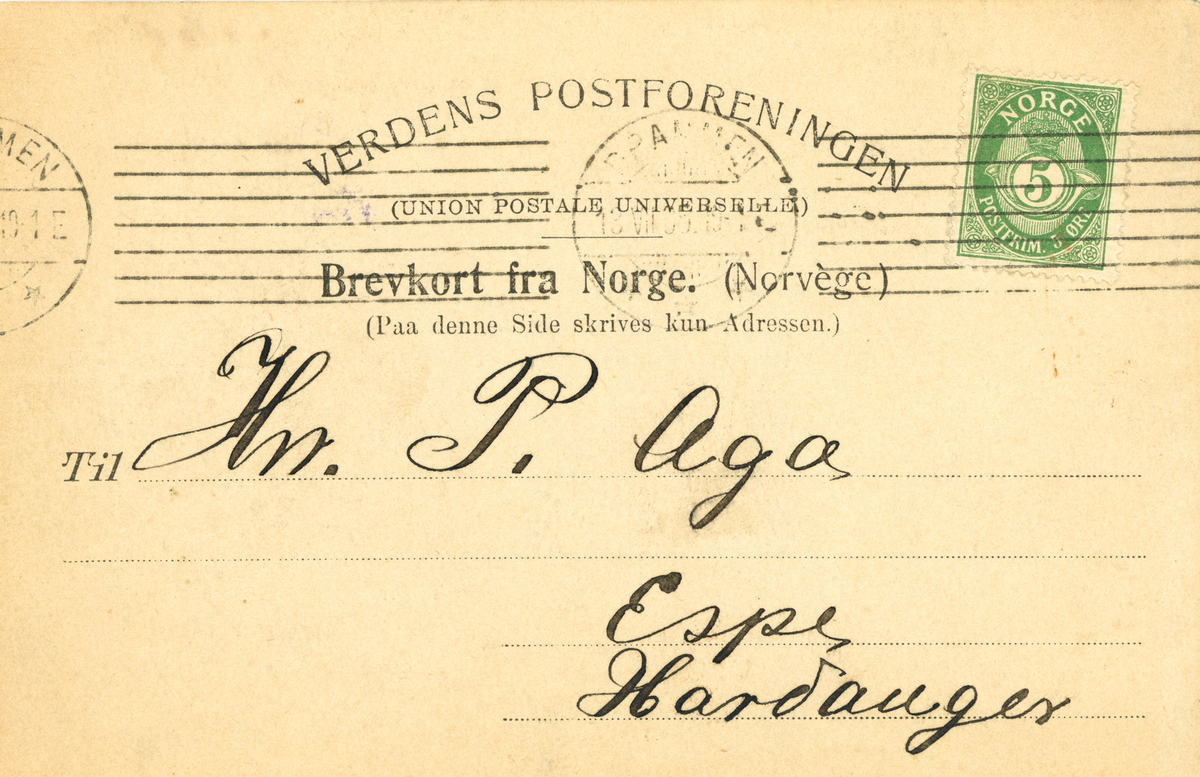 VERDENS POSTFORENINGEN
(UNION POSTALE UNIVERSELLE)
Brevkort fra Norge. (Norvège)
(Paa denne Side skrives kun Adressen.)
NORGE
5
POSTFRIM 5 ØRE
DRAMMEN
MEN
10-1 E
Til Hr. P. Aga
Espe
Hardanger